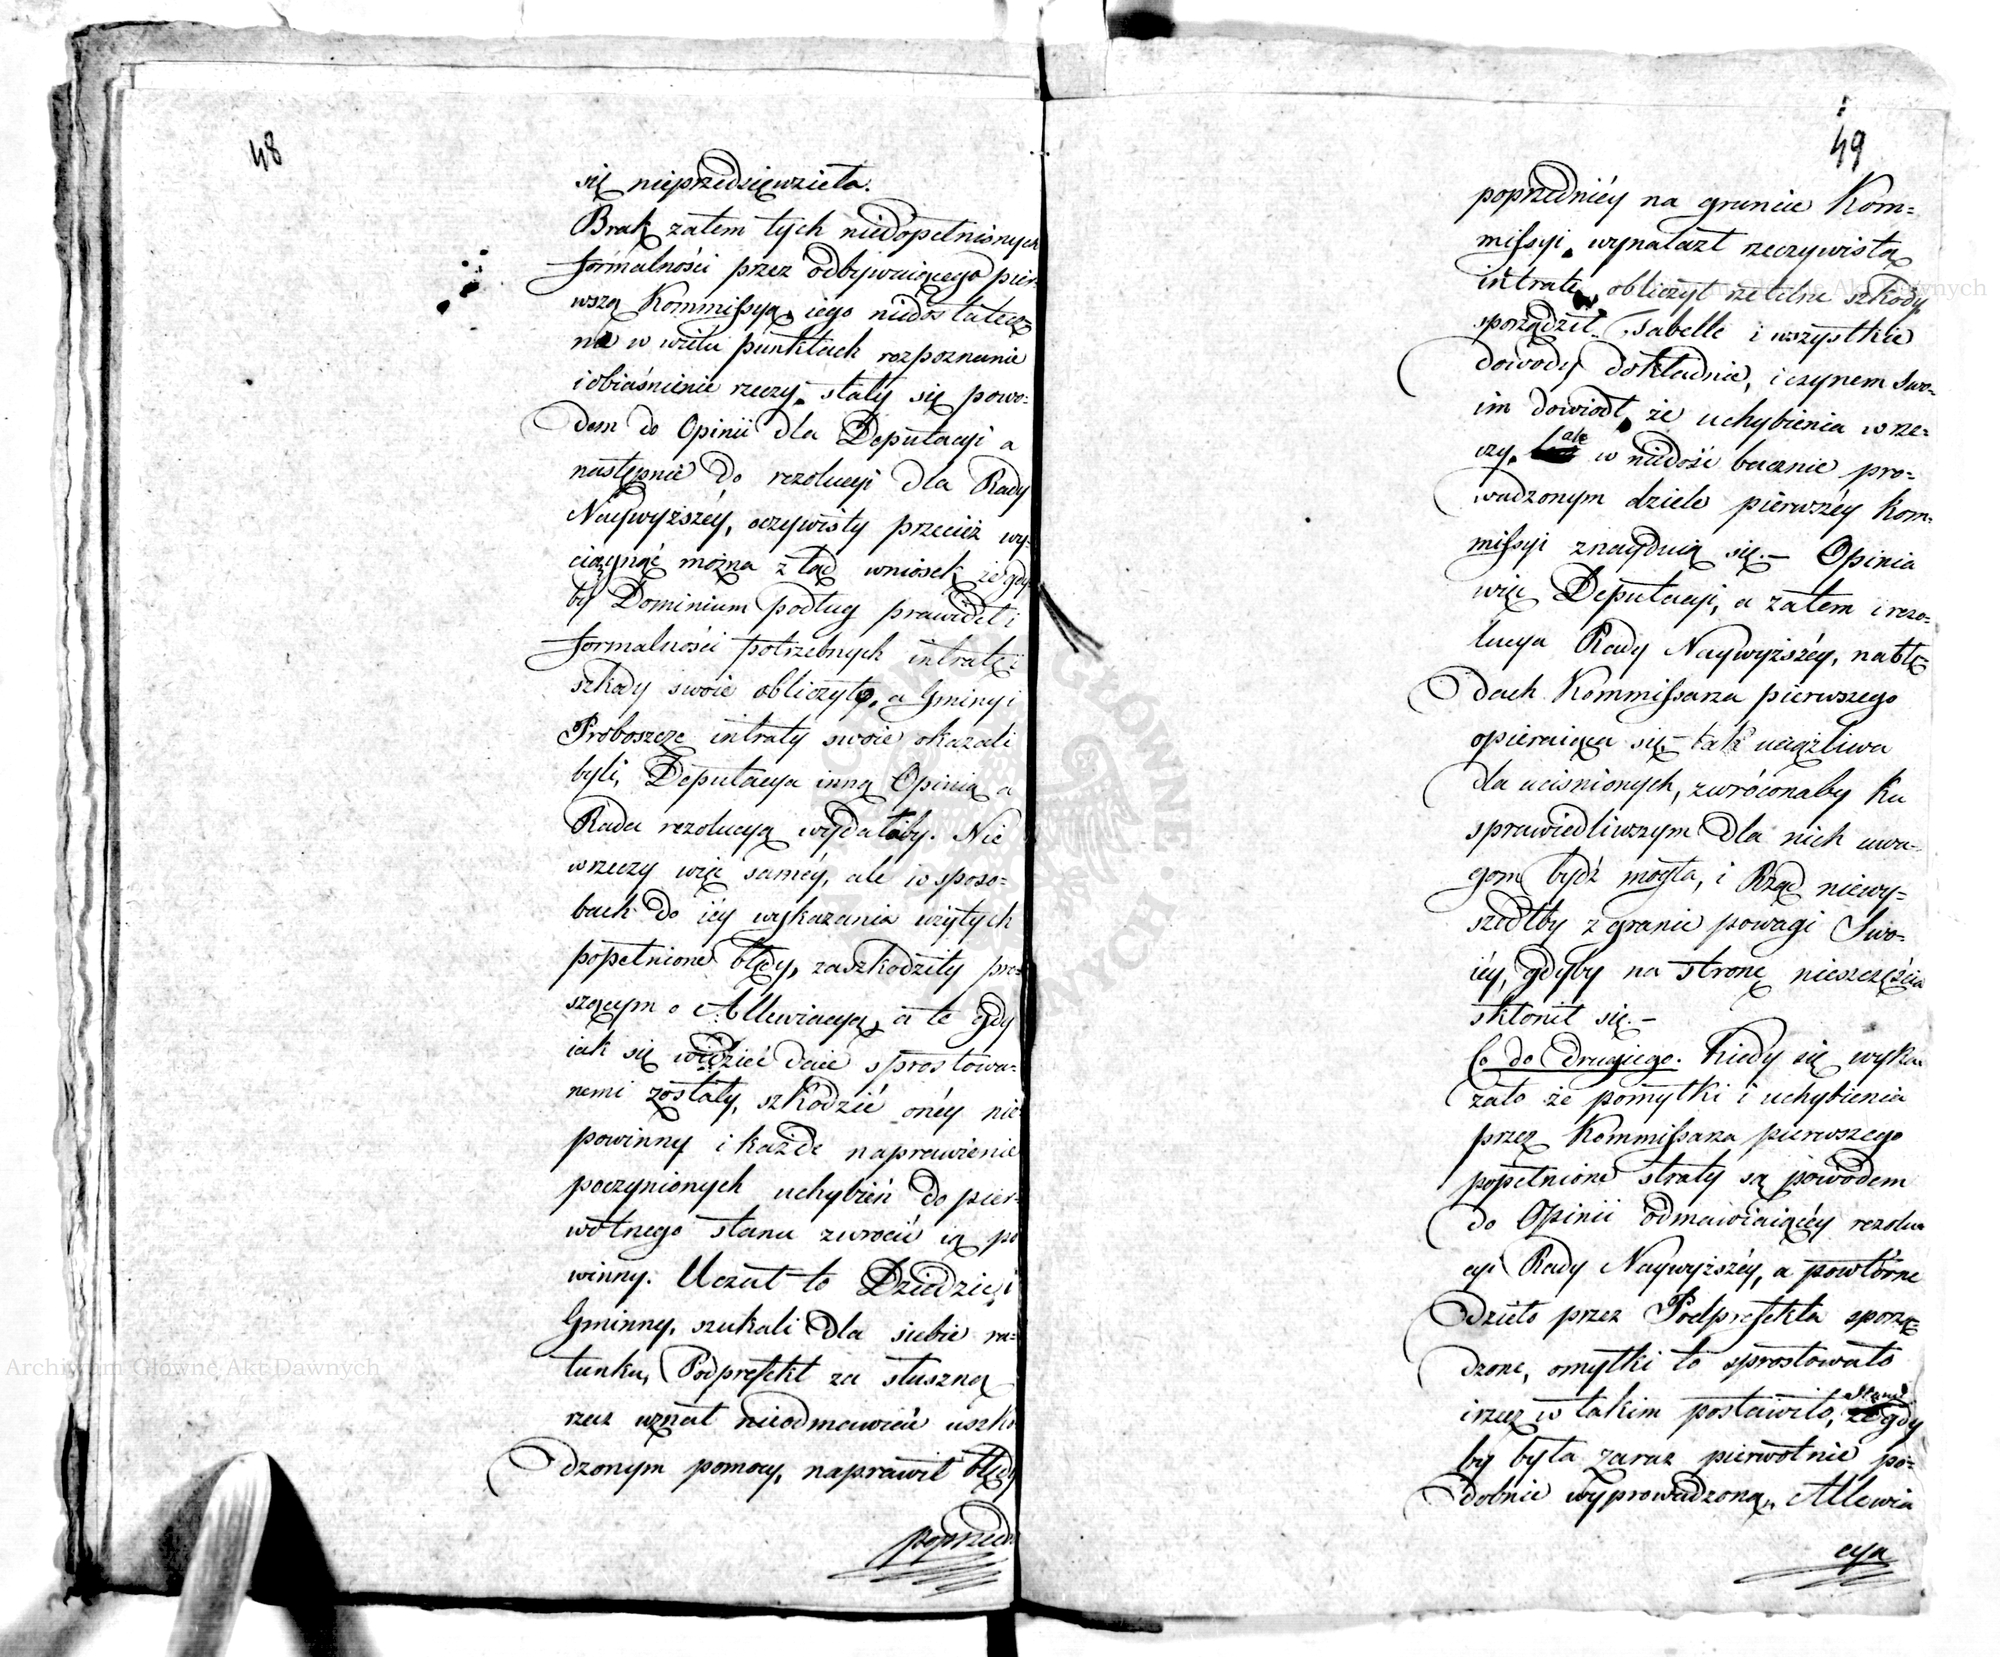 48
się nieprzedsięwzieła.
Brak zatem tych niedopełnionych
formalności przez odbywaiącego pier-
wszą Kommissyą, iego niedostatecz
ne w wielu punktach rozpoznanie
i obiaśnienie rzeczy, stały się powo-
dem do Opinii dla Deputacyi a
następnie do rezolucyi dla Rady
Naywyższéy, oczywisty przecież wy-
ciągnąć można ztąd wniosek że gdy
by Dominium podług prawideł i
formalności potrzebnych intratę i
szkody swoie obliczyło, a Gminy i
Proboszcze intraty swoie okazali
byli, Deputacya inną Opinią a
Rada rezolucyą wydałaby. Nie
w rzeczy więc saméy, ale w sposo-
bach do iéy wykazania użytych
popełnione błędy, zaszkodziły pro-
szącym o Allewiacyą, a te gdy
iak się widzieć daie sprostowa-
nemi zostały, szkodzić onéy nie
powinny i każde naprawienie
poczynionych uchybień do pier-
wotnego stanu zwrócić ią po
winny. Uczuł to Dziedzic, i
Gminny, szukali dla siebie ra-
tunku, Podprefekt za słuszną
rzecz uznał nieodmawiać uszko
dzonym pomocy, naprawił błędy
poprzedn
49
poprzedniéy na gruncie Kom-
missyi, wynalazł rzeczywistą
intratę, obliczył rzetelne szkody
sporządził Tabelle i wszystkie
dowody dokładnie, i czynem swo-
im dowiodł, że uchybienia w rze-
czy, ale w niedość bacznie pro-
wadzonym dziele pierwszéy Kom-
missyi znayduią się.— Opinia
więc Deputacyi, a zatem i rezo-
lucya Rady Naywyższéy, na błę-
dach Kommissarza pierwszego
opieraiąca się,— tak uciążliwa
dla uciśnionych, zwróconaby ku
sprawiedliwszym dla nich uwa-
gom bydź mogła, i Rząd niewy-
szedłby z granic powagi Swo-
iéy, gdyby na stronę nieszczęścia
skłonił się.—
Co do drugiego. Kiedy się wyka
zało że pomyłki i uchybienia
przez Kommissarza pierwszego
popełnione straty są powodem
do Opinii odmawiaiącéy rezolu
cyi Rady Naywyższéy, a powtórne
dzieło przez Podprefekta sporzą-
dzone, omyłki te sprostowało
i rzecz w takim postawiło, stanie
że gdy
by była zaraz pierwotnie po-
dobnie wyprowadzoną, Allewia
cya
Archiwum Główne Akt Dawnych